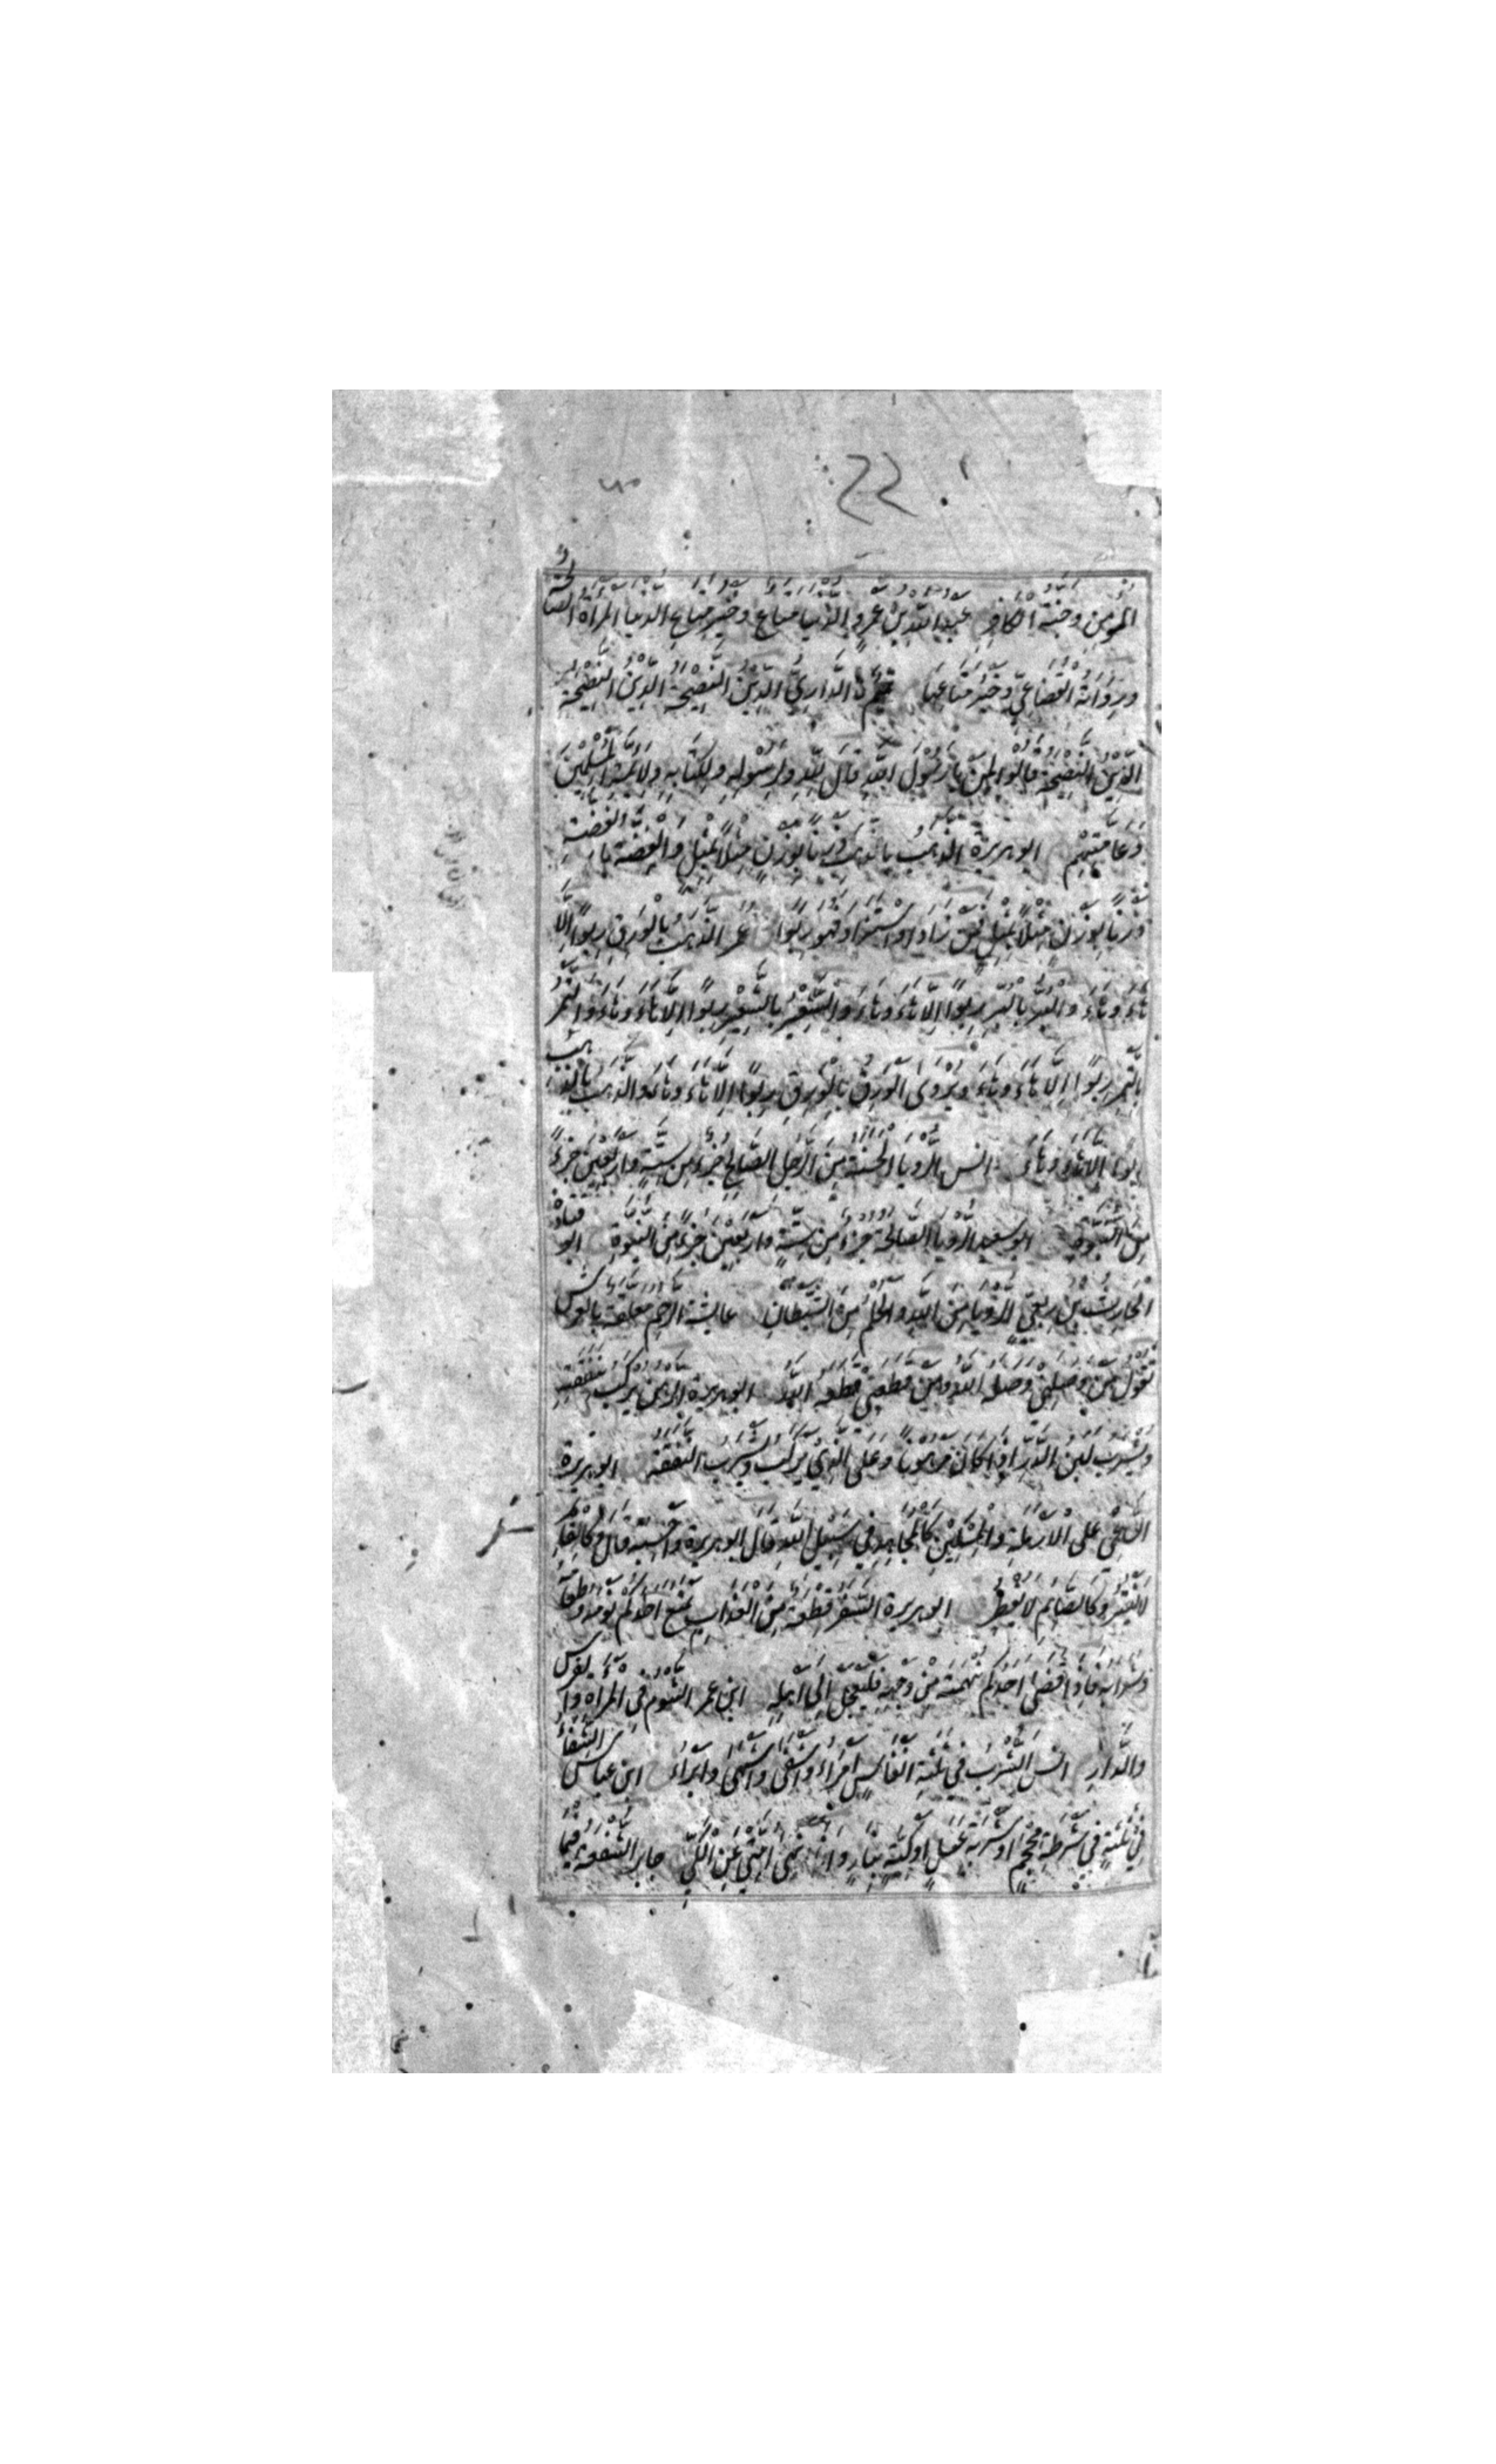 المؤمن وجنة الكافر عبد الله بن عمرو الدنيا متاع وخير متاع الدنيا المرأة الصالحة
ورواية القضاعي وخير متاعها تميم الداري الدين النصيحة الدين النصيحة
الدين النصيحة قالوا لمن يا رسول الله قال لله ولرسوله ولكتابه ولائمة المسلمين
وعامتهم ابو هريرة الذهب بالذهب وزنا بوزن مثلا بمثل والفضة بالفضة
وزنا بوزن مثلا بمثل فمن زاد او استزاد فهو ربوا عمر الذهب بالورق ربوا الا
هاء وهاء والبر بالبر ربوا الا هاء وهاء والشعير بالشعير ربوا الا هاء وهاء والتمر
بالتمر ربوا الا هاء وهاء ويروى الورق بالورق ربوا الا هاء وهاء والذهب بالذهب
ربوا الا هاء وهاء انس الرؤيا الحسنة من الرجل الصالح جزء من ستة واربعين جزءا
من النبوة ابو سعيد الرؤيا الصالحة جزء من ستة واربعين جزءا من النبوة ابو قتادة
الحارث بن ربعي الرؤيا من الله والحلم من الشيطان عايشة الرحم معلقة بالعرش
تقول من وصلني وصله الله ومن قطعني قطعه الله ابو هريرة الرهن يركب بنفقته
ويشرب لبن الدر اذا كان مرهونا وعلى الذي يركب ويشرب النفقة ابو هريرة
الساعي على الارملة والمسكين كالمجاهد في سبيل الله قال ابو هريرة واحسبه قال وكالقائم
لا يفتر وكالصائم لا يفطر ابو هريرة السفر قطعة من العذاب يمنع احدكم نومه وطعامه
وشرابه فاذا قضى احدكم نهمته من وجهه فليعجل الى اهله ابن عمر الشوم في المراة والفرس
والدار انس الشرب في ثلثة انفاس امراء واشفى واشهى وابراء ابن عباس الشفاء
في ثلثة في شرطة محجم او شربة عسل او كية بنار وانا انهى امتي عن الكي جابر الشفعة فيما